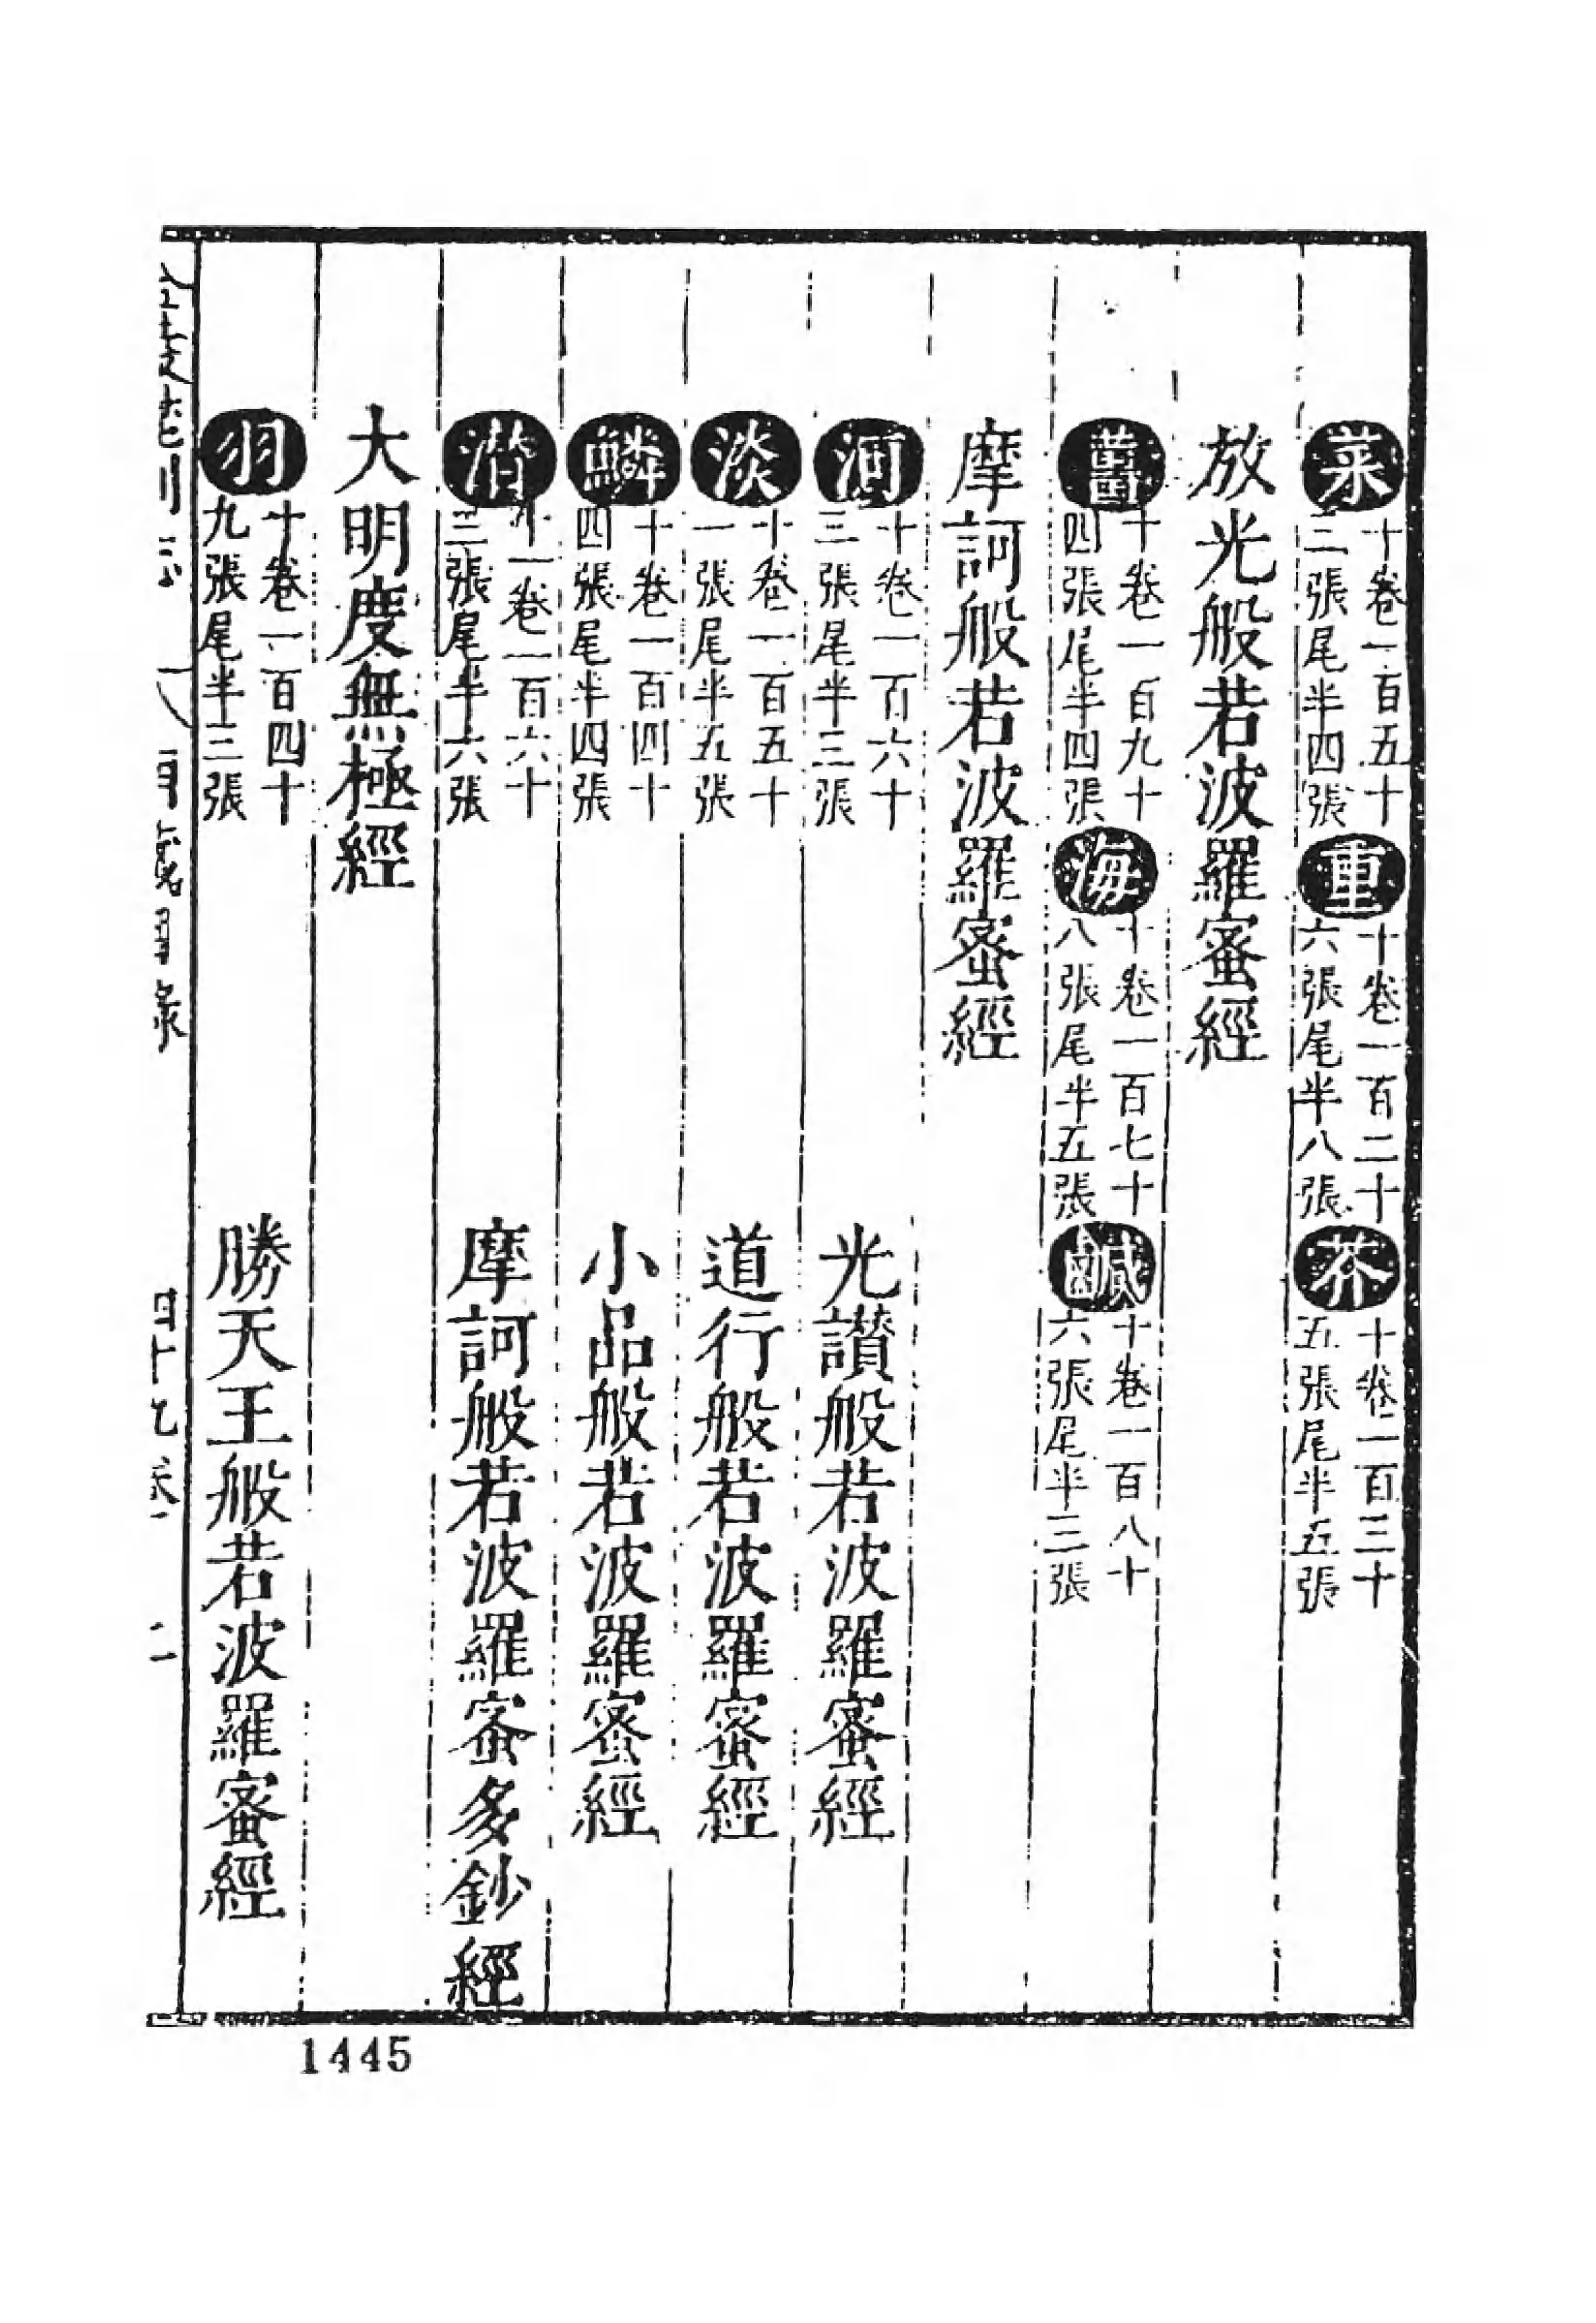 菜十卷一百五十二張尾半四張重十卷一百二十六張尾半八張芥十卷一百三十五張尾半五張
放光般若波羅蜜經
薑十卷一百九十四張尾半四張海十卷一百七十八張尾半五張鹹十卷一百八十六張尾半三張
摩訶般若波羅蜜經
河十卷一百六十三張尾半三張 光讚般若波羅蜜經
淡十卷一百五十一張尾半五張 道行般若波羅蜜經
鱗十卷一百四十四張尾半四張 小品般若波羅蜜經
潛十一卷一百六十三張尾半六張 摩訶般若波羅蜜多鈔經
大明度無極經
羽十卷一百四十九張尾半三張 勝天王般若波羅蜜經
四十九卷 二
1445